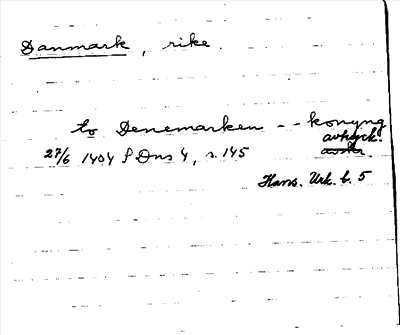 Danmark, rike.
to Denemarken -- konyng
27/6 1404 SDns 4, s. 145 avtryck.
Hans. Urk. b. 5